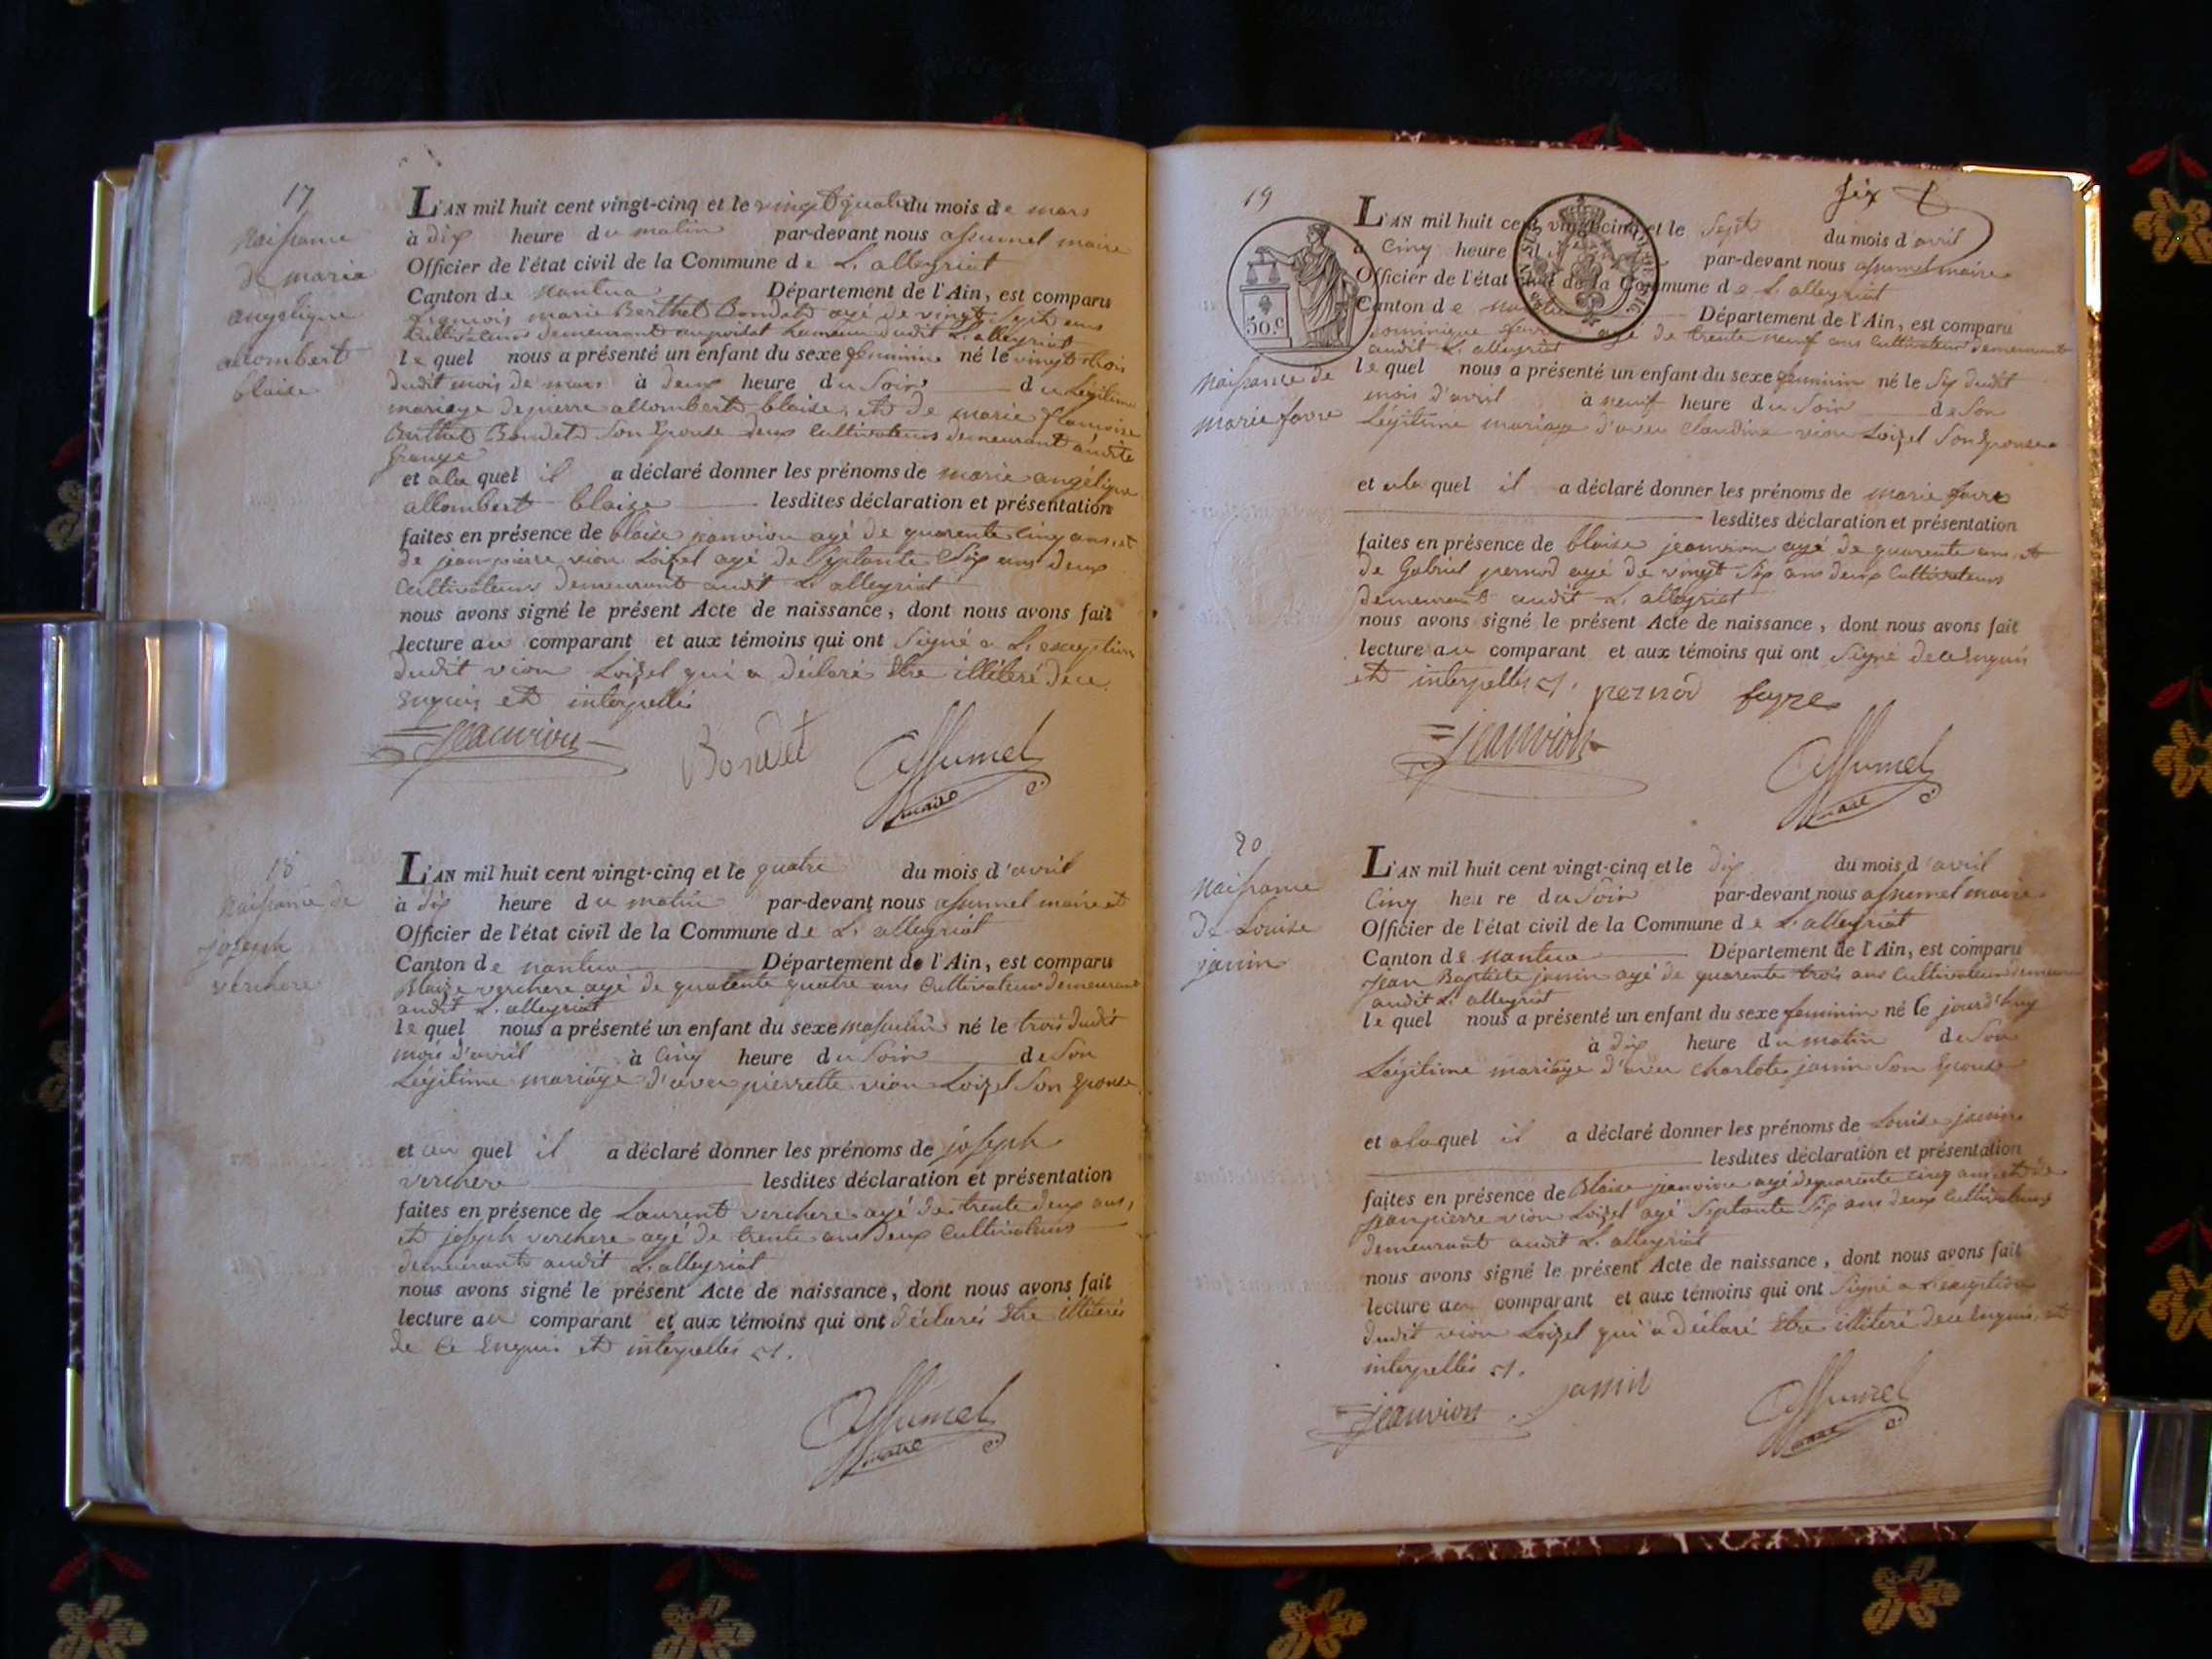 17
Naissance
de marie
angelique
allombert
blaise
L'AN mil huit cent vingt-cinq et le vingt quatre du mois de mars
à dix heure du matin par-devant nous assumel maire
Officier de l'état civil de la Commune de L'alleyriat
Canton de nantua Département de l'Ain, est comparu
marie Berthet Bondet agé de vingt sept ans
Cultivateur demeurant hameau dudit L'alleyriat
le quel nous a présenté un enfant du sexe feminin né le vingt trois
dudit mois de mars à deux heure du Soir du Légitime
mariage de pierre allombert blaise, et de marie françoise
Berthet Bondet Son Epouse deux Cultivateurs demeurant audite
Grange
et a la quel il a déclaré donner les prénoms de marie angélique
allombert blaize lesdites déclaration et présentation
faites en présence de blaise jeanvion agé de quarente cinq ans, et
de jeanpierre vion Loizel agé de Septante Six ans deux
Cultivateurs demeurant audit L'alleyriat
nous avons signé le présent Acte de naissance, dont nous avons fait
lecture au comparant et aux témoins qui ont Signé a L'exception
dudit vion Loizel qui a déclaré Etre illiteré de ce
Enquis et interpellé
jeanvion Bondet Assumel
maire
18
Naissance de
joseph
verchere
L'AN mil huit cent vingt-cinq et le quatre du mois d'avril
à dix heure du matin par-devant nous assumel maire et
Officier de l'état civil de la Commune de L'alleyriat
Canton de nantua Département de l'Ain, est comparu
Blaize verchere agé de quarente quatre ans Cultivateur demeurant
audit L'alleyriat
le quel nous a présenté un enfant du sexe masculin né le trois dudit
mois d'avril à Cinq heure du Soir de Son
Légitime mariage d'avec pierrette vion Loizel Son Epouse
et au quel il a déclaré donner les prénoms de joseph
verchere lesdites déclaration et présentation
faites en présence de Laurent verchere agé de trente deux ans,
et joseph verchere agé de trente ans deux Cultivateurs
demeurant audit L'alleyriat
nous avons signé le présent Acte de naissance, dont nous avons fait
lecture au comparant et aux témoins qui ont déclarés Etre illiterés
de Ce Enquis et interpellés
Assumel
maire
Six
19
50.c
Naissance de
marie favre
L'AN mil huit cent vingt-cinq et le Sept du mois d'avril
à Cinq heure par-devant nous assumel maire
Officier de l'état civil de la Commune de L'alleyriat
Canton de nantua Département de l'Ain, est comparu
Dominique favre agé de trente neuf ans Cultivateur demeurant
audit L'alleyriat
le quel nous a présenté un enfant du sexe feminin né le Six dudit
mois d'avril à neuf heure du Soir de Son
Légitime mariage d'avec Claudine vion Loizel Son Epouse
et a la quel il a déclaré donner les prénoms de marie favre
lesdites déclaration et présentation
faites en présence de blaise jeanvion agé de quarente ans, et
de Gabriel pernod agé de vingt Six ans deux Cultivateurs
demeurant audit L'alleyriat
nous avons signé le présent Acte de naissance, dont nous avons fait
lecture au comparant et aux témoins qui ont Signé de ce Enquis
et interpellés pernod favre
jeanvion Assumel
maire
20
Naissance
de Louise
janin
L'AN mil huit cent vingt-cinq et le dix du mois d'avril
Cinq heure du Soir par-devant nous assumel maire
Officier de l'état civil de la Commune de L'alleyriat
Canton de nantua Département de l'Ain, est comparu
Jean Baptiste janin agé de quarente trois ans Cultivateur demeurant
audit L'alleyriat
le quel nous a présenté un enfant du sexe feminin né le jourd'huy
à dix heure du matin de Son
Légitime mariage d'avec Charlote janin Son Epouse
et a la quel il a déclaré donner les prénoms de Louise janin
lesdites déclaration et présentation
faites en présence de Blaise jeanvion agé de quarente Cinq ans, et de
jeanpierre vion Loizel agé Septante Six ans deux Cultivateurs
demeurant audit L'alleyriat
nous avons signé le présent Acte de naissance, dont nous avons fait
lecture au comparant et aux témoins qui ont Signé a L'exception
dudit vion Loizel qui a déclaré Etre illiteré de ce Enquis, et
interpellés
jeanvion janin Assumel
maire